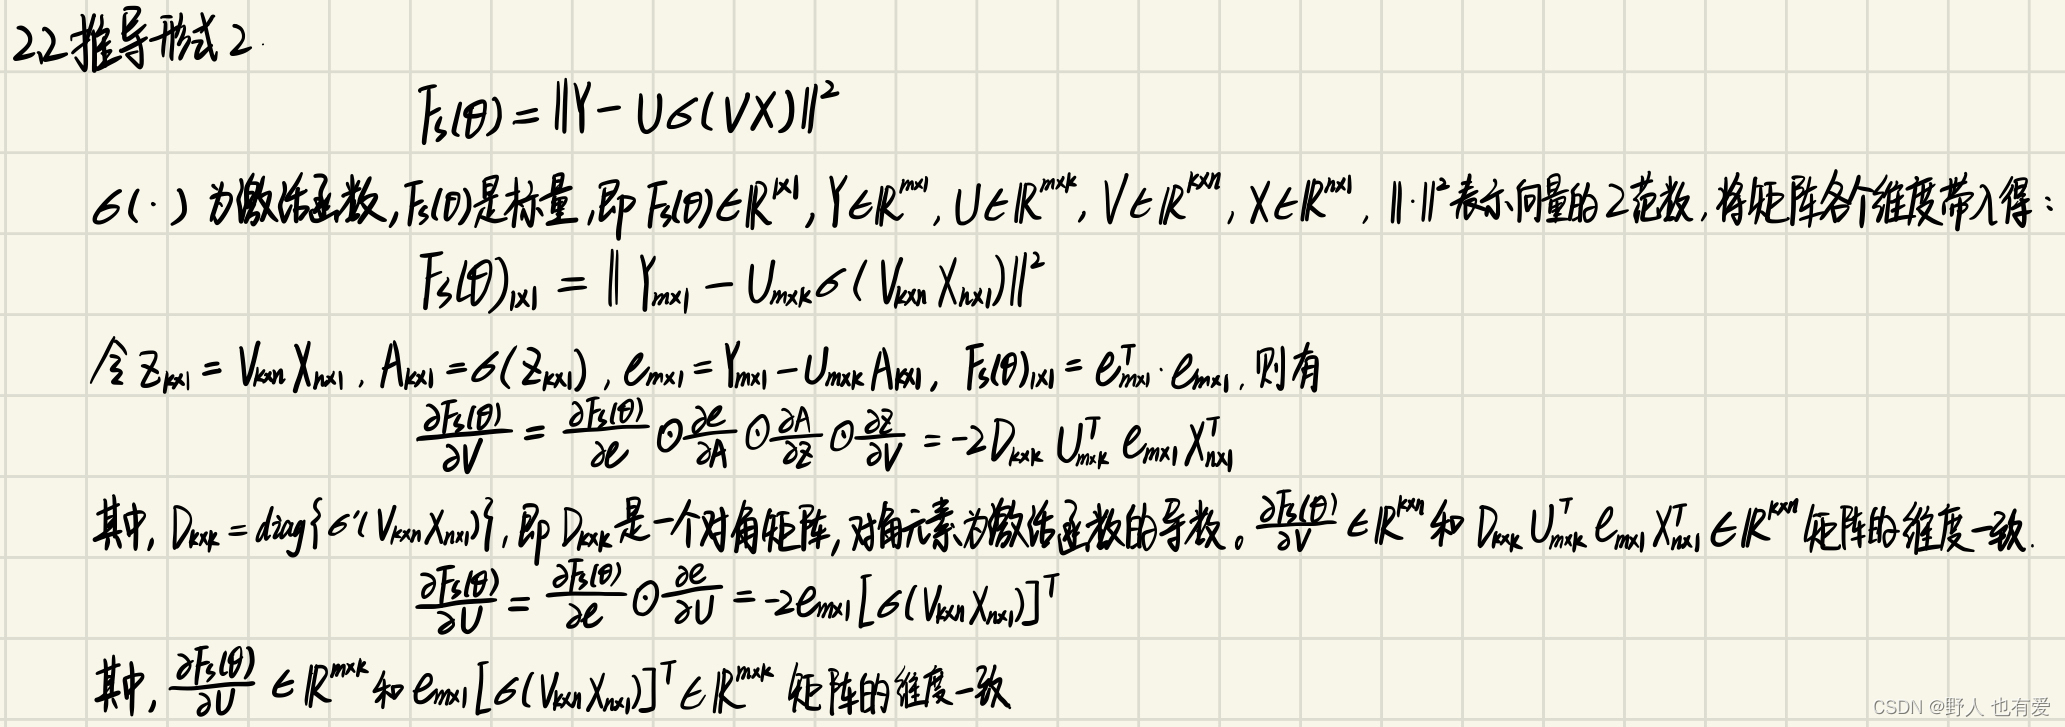 2.2 推导形式 2.
Fs(θ) = ‖Y − Uσ(VX)‖²
σ(·) 为激活函数, Fs(θ)是标量, 即 Fs(θ)∈R^{1×1}, Y∈R^{m×1}, U∈R^{m×k}, V∈R^{k×n}, X∈R^{n×1}, ‖·‖²表示向量的2范数, 将矩阵各个维度带入得:
Fs(θ)_{1×1} = ‖Y_{m×1} − U_{m×k}σ(V_{k×n}X_{n×1})‖²
令 Z_{k×1} = V_{k×n}X_{n×1}, A_{k×1} = σ(Z_{k×1}), e_{m×1} = Y_{m×1} − U_{m×k}A_{k×1}, Fs(θ)_{1×1} = e^T_{m×1}·e_{m×1}, 则有
∂Fs(θ)/∂V = ∂Fs(θ)/∂e ⊙ ∂e/∂A ⊙ ∂A/∂Z ⊙ ∂Z/∂V = −2D_{k×k}U^T_{m×k}e_{m×1}X^T_{n×1}
其中, D_{k×k} = diag{σ'(V_{k×n}X_{n×1})}, 即 D_{k×k} 是一个对角矩阵, 对角元素为激活函数的导数。∂Fs(θ)/∂V ∈R^{k×n} 和 D_{k×k}U^T_{m×k}e_{m×1}X^T_{n×1} ∈R^{k×n} 矩阵的维度一致.
∂Fs(θ)/∂U = ∂Fs(θ)/∂e ⊙ ∂e/∂U = −2e_{m×1}[σ(V_{k×n}X_{n×1})]^T
其中, ∂Fs(θ)/∂U ∈R^{m×k} 和 e_{m×1}[σ(V_{k×n}X_{n×1})]^T ∈R^{m×k} 矩阵的维度一致
CSDN @野人 也有爱